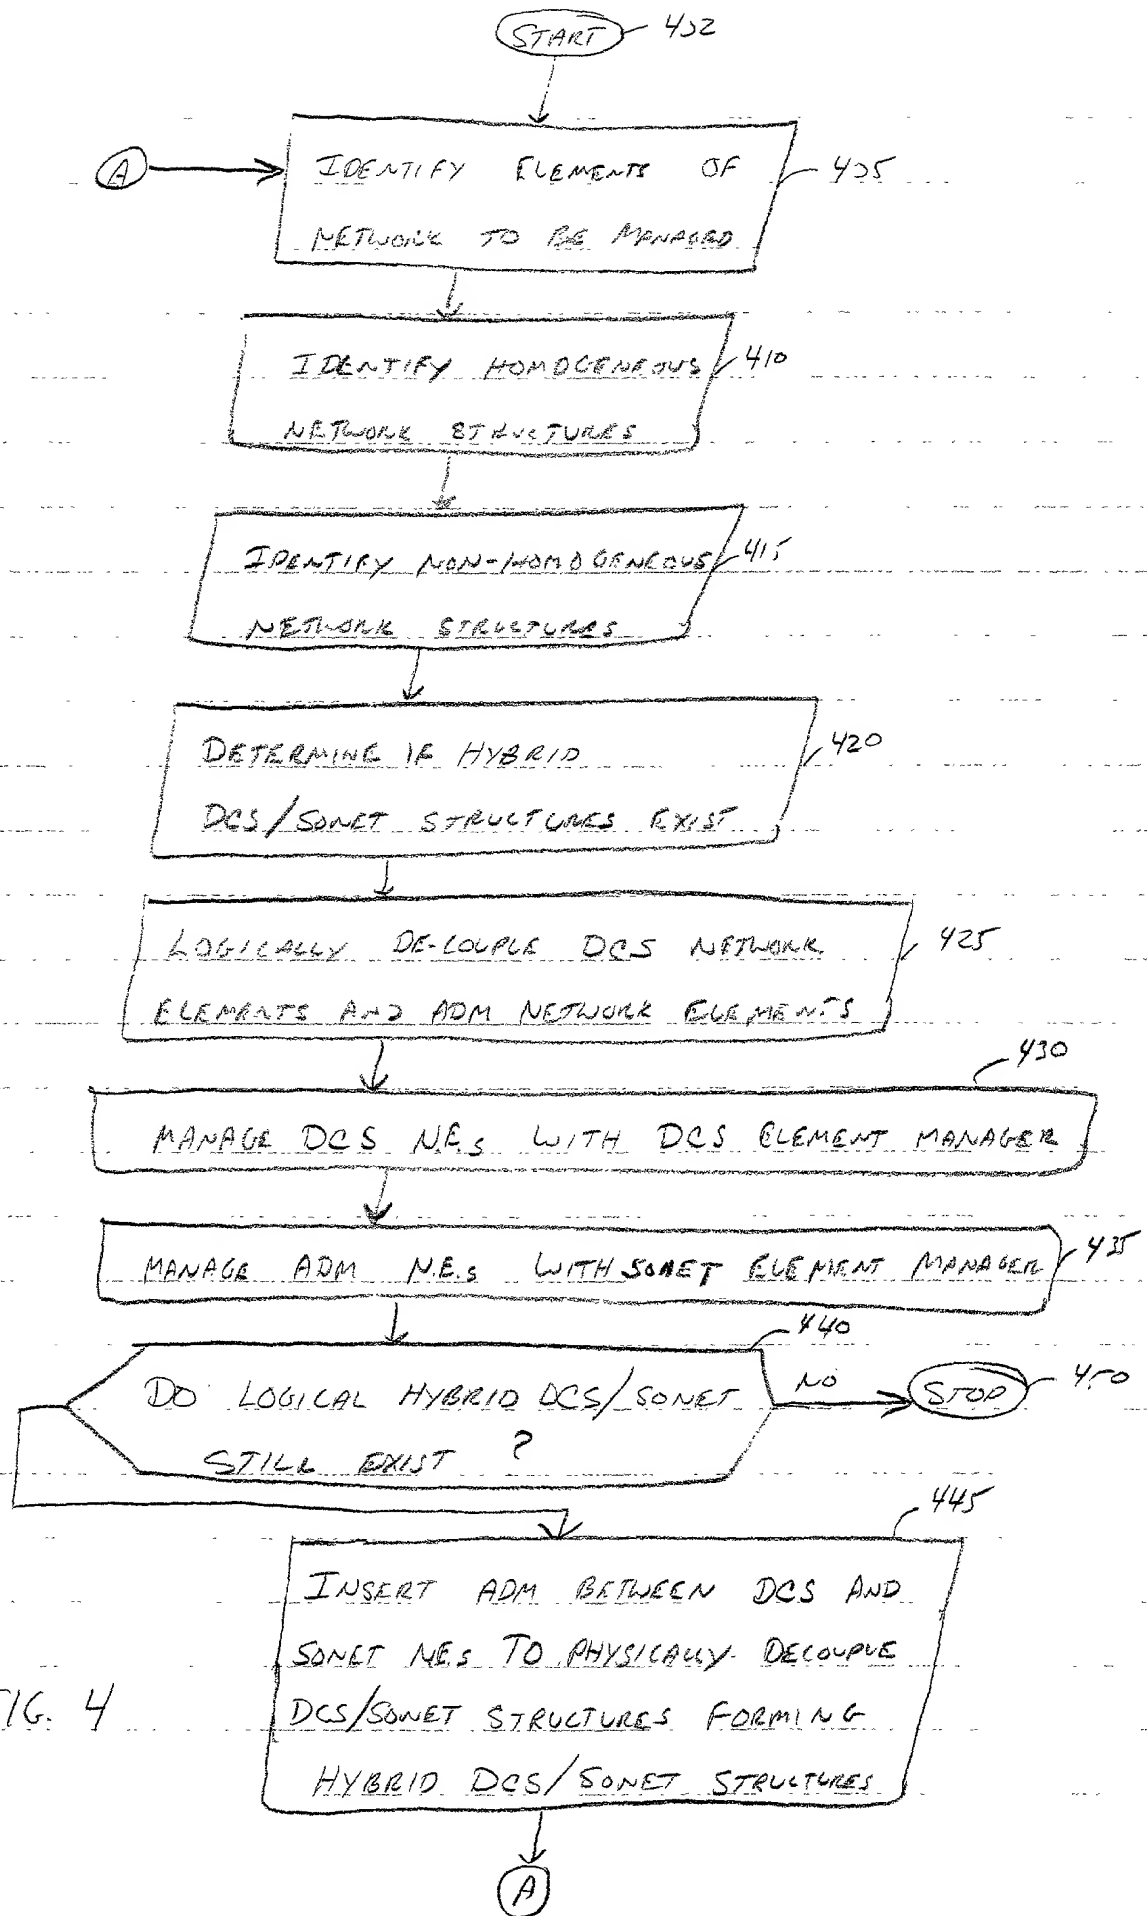 START 402
A
IDENTIFY ELEMENTS OF 405
NETWORK TO BE MANAGED
IDENTIFY HOMOGENEOUS 410
NETWORK STRUCTURES
IDENTIFY NON-HOMOGENEOUS 415
NETWORK STRUCTURES
DETERMINE IF HYBRID 420
DCS/SONET STRUCTURES EXIST
LOGICALLY DE-COUPLE DCS NETWORK 425
ELEMENTS AND ADM NETWORK ELEMENTS
430
MANAGE DCS N.E.s WITH DCS ELEMENT MANAGER
MANAGE ADM N.E.s WITH SONET ELEMENT MANAGER 435
440
DO LOGICAL HYBRID DCS/SONET NO STOP 450
STILL EXIST ?
445
INSERT ADM BETWEEN DCS AND
SONET NEs TO PHYSICALLY DECOUPLE
DCS/SONET STRUCTURES FORMING
HYBRID DCS/SONET STRUCTURES
IG. 4
A